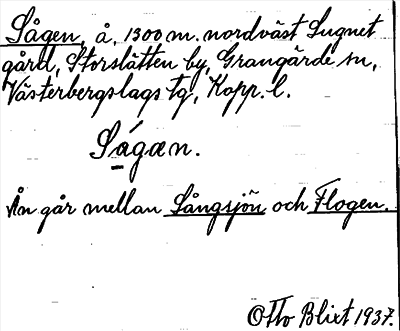 Sågen, å, 1300 m. nordväst Lugnet
gård, Storslätten by, Grangärde sn,
Västerbergslags tg, Kopp. l.
Sågæn.
Ån går mellan Sångsjön och Flogen.
Otto Blixt 1937.